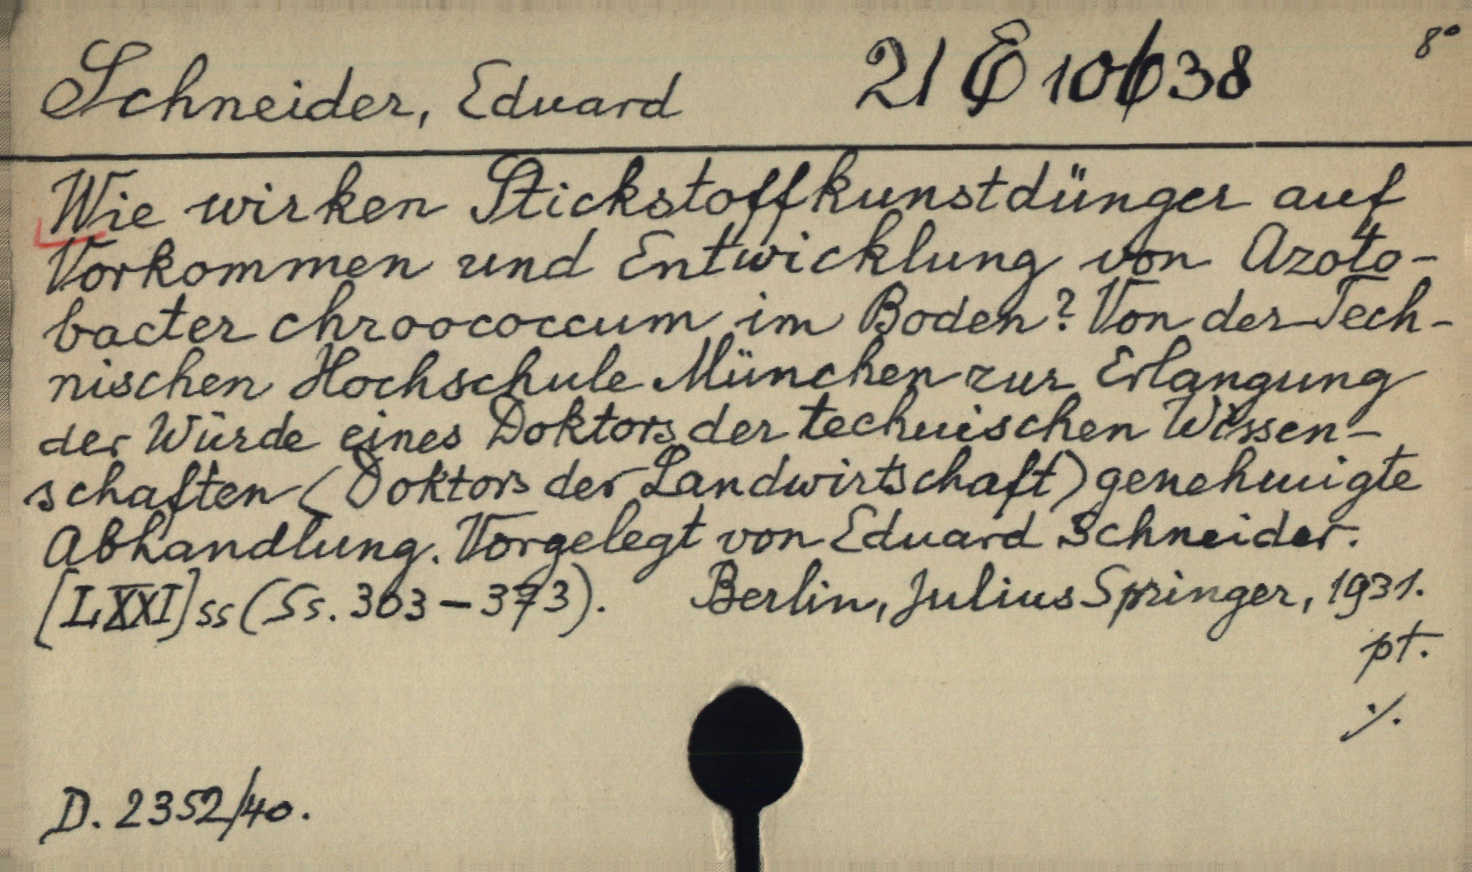 Schneider, Eduard 21 E 10638 8°
Wie wirken Stickstoffkunstdünger auf
Vorkommen und Entwicklung von Azoto-
bacter chroococcum im Boden? Von der Tech-
nischen Hochschule München zur Erlangung
der Würde eines Doktors der technischen Wissen-
schaften (Doktors der Landwirtschaft) genehmigte
Abhandlung. Vorgelegt von Eduard Schneider.
[LXXI] ss (Ss. 303-373). Berlin, Julius Springer, 1931.
pt.
·/.
D. 2352/40.